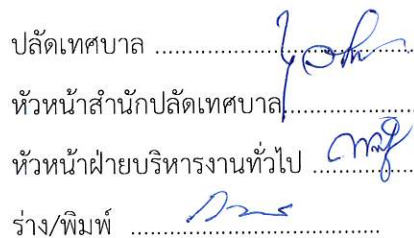 ปลัดเทศบาล ........................
หัวหน้าสำนักปลัดเทศบาล....................
หัวหน้าฝ่ายบริหารงานทั่วไป ................
ร่าง/พิมพ์ ....................................